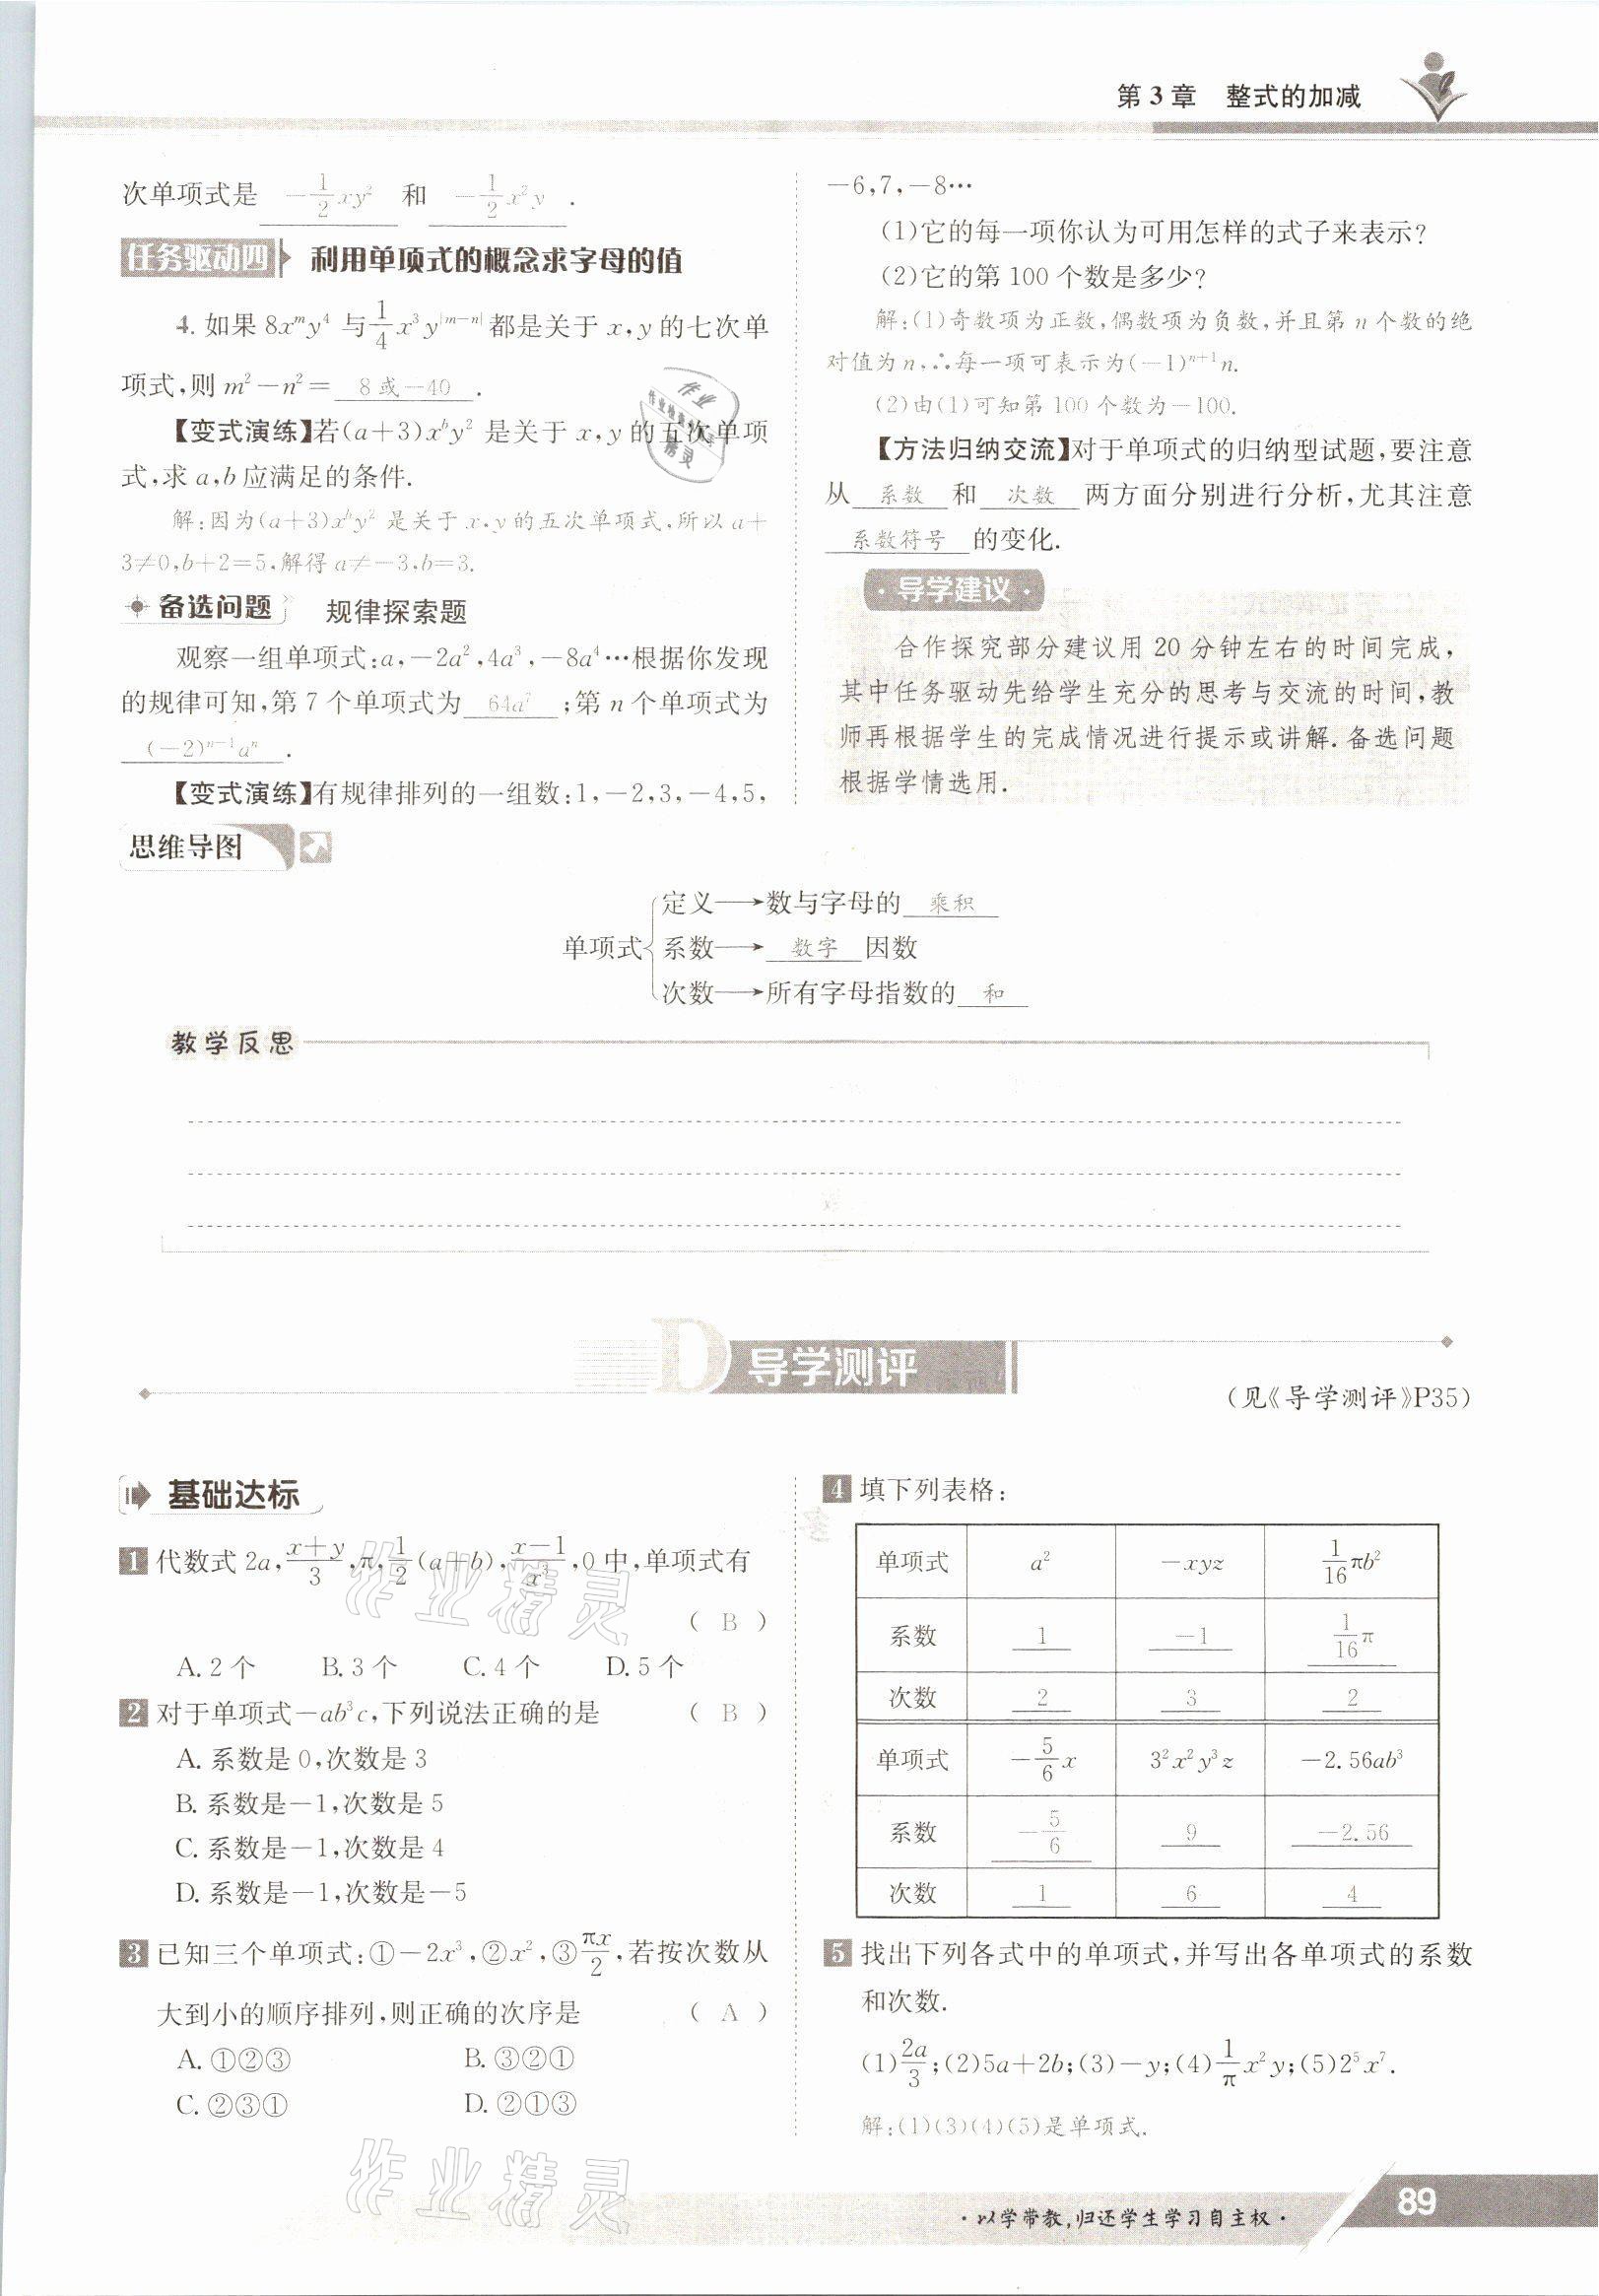 第3章 整式的加减
次单项式是 -1/2xy² 和 -1/2x²y .
任务驱动四 利用单项式的概念求字母的值
4. 如果 8xᵐy⁴ 与 1/4x³y^|m-n| 都是关于 x,y 的七次单
项式,则 m²-n²= 8或-40 .
【变式演练】若(a+3)xᵇy² 是关于 x,y 的五次单项
式,求 a,b 应满足的条件.
解:因为(a+3)xᵇy² 是关于 x,y 的五次单项式,所以 a+
3≠0,b+2=5,解得 a≠-3,b=3.
备选问题 规律探索题
观察一组单项式:a,-2a²,4a³,-8a⁴…根据你发现
的规律可知,第7个单项式为 64a⁷ ;第 n 个单项式为
(-2)ⁿ⁻¹aⁿ .
【变式演练】有规律排列的一组数:1,-2,3,-4,5,
-6,7,-8…
(1)它的每一项你认为可用怎样的式子来表示?
(2)它的第100个数是多少?
解:(1)奇数项为正数,偶数项为负数,并且第 n 个数的绝
对值为 n,∴每一项可表示为(-1)ⁿ⁺¹n.
(2)由(1)可知第100个数为-100.
【方法归纳交流】对于单项式的归纳型试题,要注意
从 系数 和 次数 两方面分别进行分析,尤其注意
系数符号 的变化.
·导学建议·
合作探究部分建议用20分钟左右的时间完成,
其中任务驱动先给学生充分的思考与交流的时间,教
师再根据学生的完成情况进行提示或讲解.备选问题
根据学情选用.
思维导图
定义→数与字母的 乘积
单项式 系数→ 数字 因数
次数→所有字母指数的 和
教学反思
D 导学测评
(见《导学测评》P35)
基础达标
1 代数式 2a,(x+y)/3,π,1/2(a+b),(x-1)/x³,0中,单项式有
( B )
A. 2个 B. 3个 C. 4个 D. 5个
2 对于单项式-ab³c,下列说法正确的是 ( B )
A. 系数是0,次数是3
B. 系数是-1,次数是5
C. 系数是-1,次数是4
D. 系数是-1,次数是-5
3 已知三个单项式:①-2x³,②x²,③πx/2,若按次数从
大到小的顺序排列,则正确的次序是 ( A )
A. ①②③ B. ③②①
C. ②③① D. ②①③
4 填下列表格:
单项式 a² -xyz 1/16πb²
系数 1 -1 1/16π
次数 2 3 2
单项式 -5/6x 3²x²y³z -2.56ab³
系数 -5/6 9 -2.56
次数 1 6 4
5 找出下列各式中的单项式,并写出各单项式的系数
和次数.
(1)2a/3;(2)5a+2b;(3)-y;(4)1/πx²y;(5)2⁵x⁷.
解:(1)(3)(4)(5)是单项式.
作业精灵
作业精灵
·以学带教,归还学生学习自主权·
89